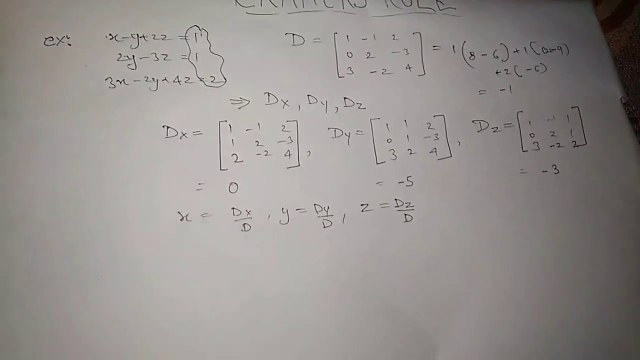 CRAMER'S RULE
ex: x-y+2z=1
2y-3z=1
3x-2y+4z=2
D = [1 -1 2
0 2 -3
3 -2 4] = 1(8-6)+1(0+9)
+2(-6)
= -1
⇒ Dx, Dy, Dz
Dx = [1 -1 2
1 2 -3
2 -2 4], Dy = [1 1 2
0 1 -3
3 2 4], Dz = [1 -1 1
0 2 1
3 -2 2]
= 0 = -5 = -3
x = Dx/D, y = Dy/D, z = Dz/D